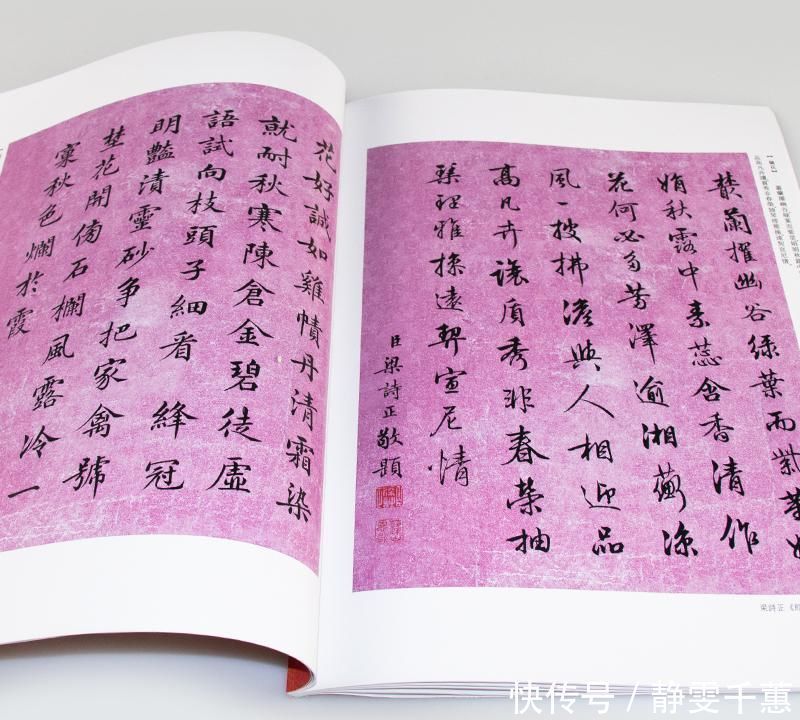 叢蘭擢幽谷綠葉而紫莖娟
娟秋露中素蕊含香清作
花何必多芳澤逾湘蘅涼
風一披拂澹與人相迎品
高凡卉讓質秀非春榮抽
琴理雅操遠契宣尼情
臣梁詩正敬題
梁詩正《
花好誠如雞幘丹清霜染
就耐秋寒陳倉金碧徒虛
語試向枝頭子細看 絳冠
明豔漬靈砂爭把家禽號
埜花開傍石欄風露冷一
窠秋色爛於霞
快传号 / 静雯千蕙